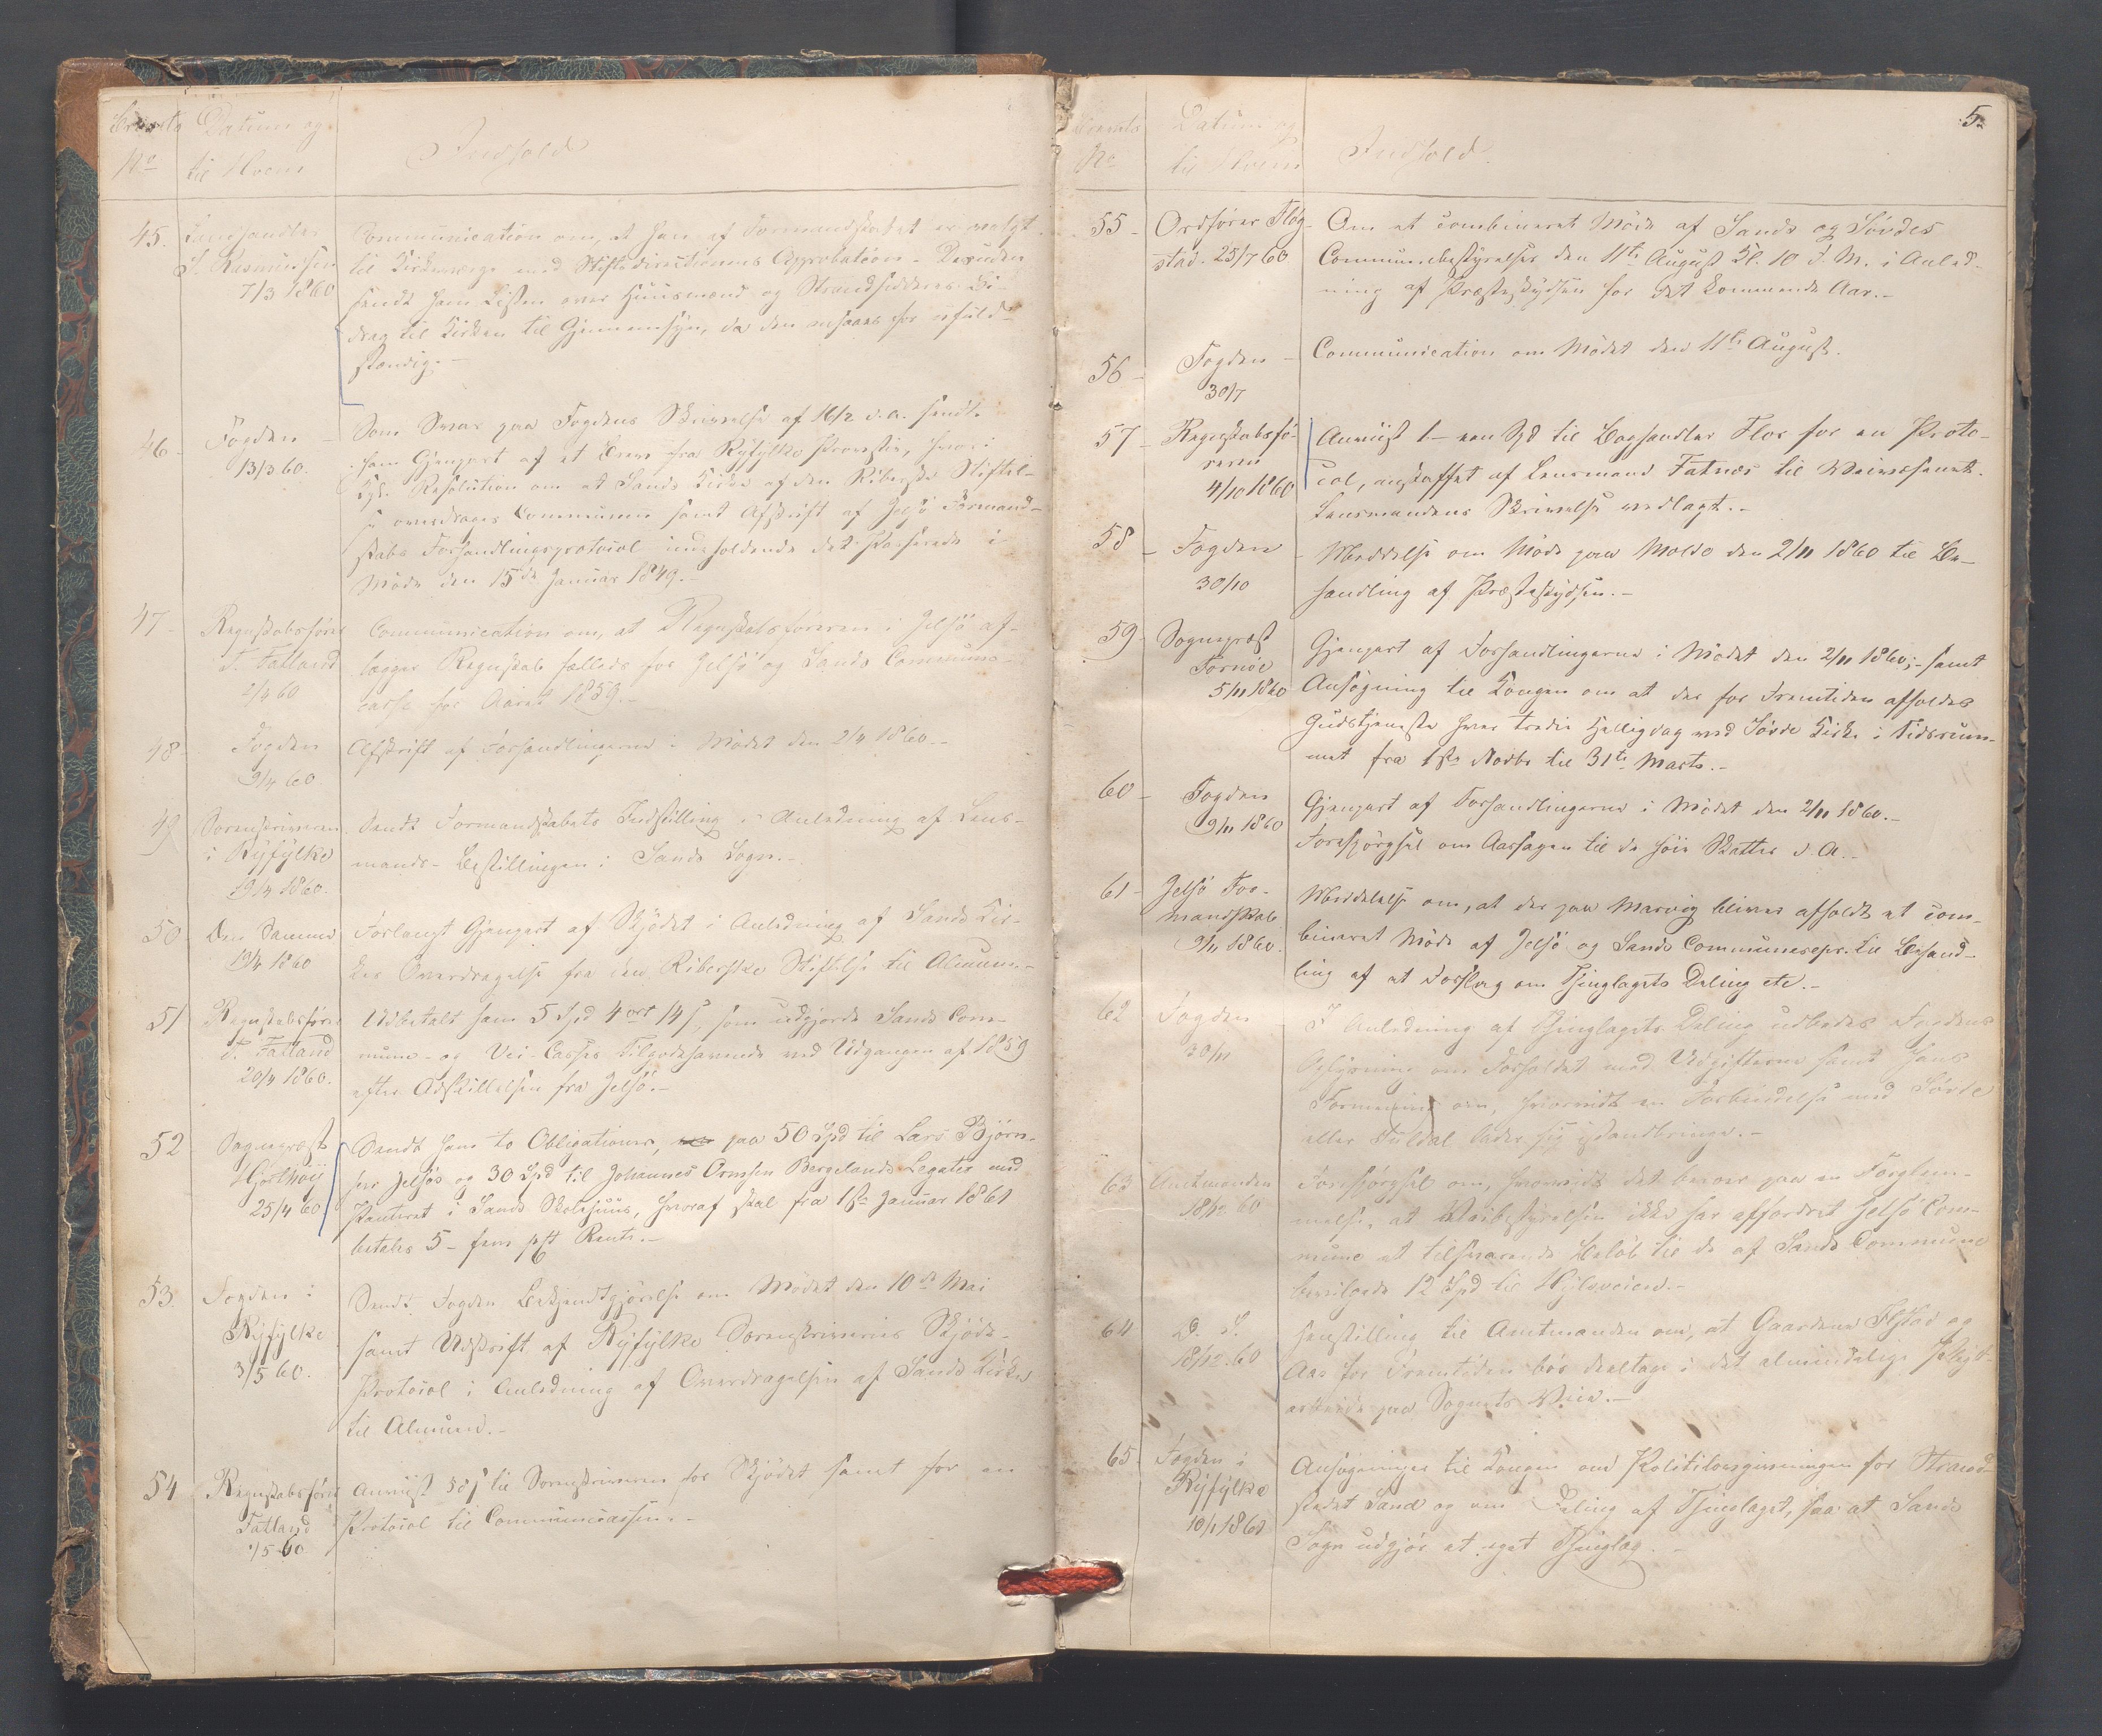 Brevets Datum og
No til Hvem Indhold
45. Landhandler Communication om, at han af Formandskabet er valgt
S. Rasmussen til Kirkeværge med Stiftsdirectionens Approbation - Desuden
7/3 1860 sendt ham Listen over Huusmænd og Strandsidderes Bi-
drag til Kirken til Gjennemsyn, da den ansaaes for ufuld-
stændig.-
46. Fogden - Som Svar paa Fogdens Skrivelse af 16/2 d.a. sendt
13/3 60. ham Gjenpart af et Brev fra Ryfylke Provstie, hvori
Kgl. Resolution om at Sands Kirke af den Riberske Stiftel-
se overdrages Communen samt Afskrift af Jelsø Formand-
skabs Forhandlingsprotocol indeholdende det Passerede i
Møde den 15de Januar 1849.-
47- Regnskabsfører Communication om, at Regnskabsføreren i Jelsø af-
T. Fatland lægger Regnskab fælleds for Jelsø og Sands Commune-
2/4 60 casse for Aaret 1859.-
48 Fogden Afskrift af Forhandlingerne i Mødet den 2/4 1860.-
9/4 60.
49 Sorenskriveren Sendt Formandskabets Indstilling i Anledning af Lens-
i Ryfylke mands-Bestillingen i Sands Sogn.-
19/4 1860.
50 Den Samme Forlangt Gjenpart af Skjødet i Anledning af Sands Kir-
19/4 1860 kes Overdragelse fra den Riberske Stiftelse til Almuen.-
51 Regnskabsfører Udbetalt ham 5 Spd 4 ort 14 s, som udgjorde Sands Com-
T. Fatland mune- og Vei-Casses Tilgodehavende ved Udgangen af 1859
20/4 1860. efter Adskillelsen fra Jelsø.-
52 Sognepræst Sendt ham to Obligationer, paa 50 Spd til Lars Bjørn-
Hjorthøy sens Jelsøs og 30 Spd til Johannes Ormsen Bergelands Legater med
25/4 60 Panteret i Sands Skolehuus, hvoraf skal fra 1ste Januar 1861
betales 5- fem pCt Rente.-
53. Fogden i Sendt Fogden Bekjendtgjørelse om Mødet den 10de Mai
Ryfylke samt Udskrift af Ryfylke Sorenskriveries Skjøde-
3/5 60. Protocol i Anledning af Overdragelsen af Sands Kirke
til Almuen.-
54 Regnskabsfører Anviist til Sorenskriveren for Skjødet samt for en
Fatland Protocol til Communecassen.-
/5 60
5.
Brevets Datum og
No til Hvem Indhold.
55- Ordfører Fløg- Om et combineret Møde af Sands og Søvdes
stad. 25/7 60 Communebestyrelser den 11te August Kl. 10 F. M. i Anled-
ning af Præsteskydsen for det kommende Aar.-
56- Fogden - Communication om Mødet den 11te August.
30/7
57- Regnskabsfø- Anviist 1- een Spd til Boghandler Flor for en Proto-
reren col, anskaffet af Lensmand Fatnes til Veivæsenet.
4/10 1860 Lensmandens Skrivelse vedlagt.-
58- Fogden - Meddelse om Møde paa Molde den 2/11 1860 til Be-
30/10 handling af Præsteskydsen.-
59- Sognepræst Gjenpart af Forhandlingerne i Mødet den 2/11 1860;- samt
Tornøe Ansøgning til Kongen om at der for Fremtiden afholdes
5/11 1860 Gudstjeneste hver tredie Helligdag ved Søvde Kirke i Tidsrum-
met fra 1ste Novbr til 31te Marts.-
60- Fogden Gjenpart af Forhandlingerne i Mødet den 2/11 1860.-
9/11 1860 Forespørgsel om Aarsagen til de høie Skatter d. A.-
61- Jelsø For- Meddelelse om, at der paa Marvig bliver afholdt et com-
mandskab bineret Møde af Jelsø og Sands Communerepr. til Behand-
9/11 1860. ling af et Forslag om Thinglagets Deling etc.-
62 Fogden I Anledning af Thinglagets Deling udbedes Fogdens
30/11 Oplysning om Forholdet med Udgifterne samt hans
Formening om, hvorvidt en Forbindelse med Søvde
eller Suldal lader sig istandbringe.-
63 Amtmanden Forespørgsel om, hvorvidt det beroer paa en Forglem-
18/12 60 melse, at Veibestyrelsen ikke har affordret Jelsø Com-
mune et tilsvarende Beløb til de af Sands Commune
bevilgede 12 Spd til Hylsveien.-
64 D. S. Henstilling til Amtmanden om, at Gaardene og
18/12 60 Aas for Fremtiden bør deeltage i det almindelige Pligt-
arbeide paa Sognets Veie.-
65- Fogden i Ansøgninger til Kongen om Politilovgivningen for Strand-
Ryfylke stedet Sand og om Deling af Thinglaget, saa at Sands
10/1 1861 Sogn udgjør et eget Thinglag.-